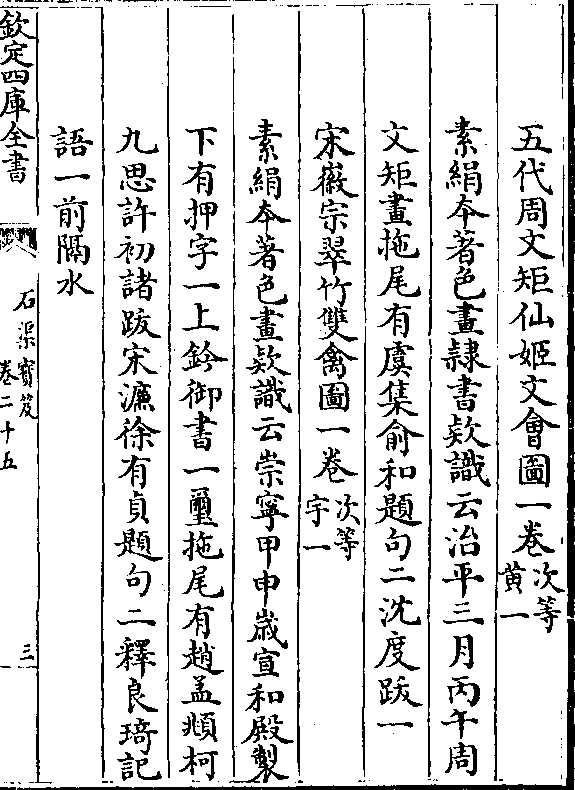 五代周文矩仙姬文會圖一卷次等黄一
素絹本著色畫隷書欵識云治平三月丙午周
文矩畫拖尾有虞集俞和題句二沈度跋一
宋徽宗翠竹雙禽圖一卷次等宇一
素絹本著色畫欵識云崇寧甲申歳宣和殿製
下有押字一上鈐御書一璽拖尾有趙孟頫柯
九思許初諸跋宋濂徐有貞題句二釋良琦記
語一前隔水
欽定四庫全書
石渠寳笈
卷二十五
三